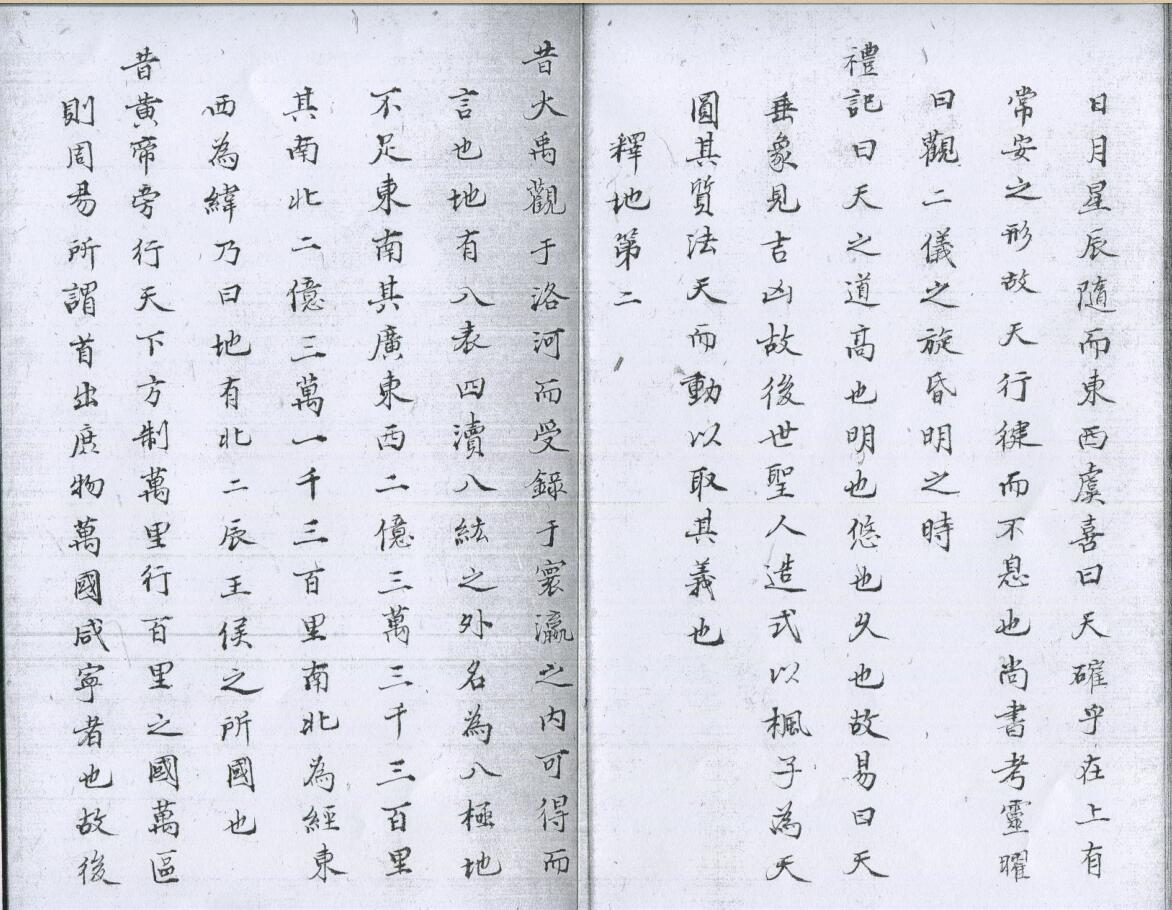 日月星辰隨而東西虞喜曰天確乎在上有
常安之形故天行徤而不息也尚書考靈曜
曰觀二儀之旋昏明之時
禮記曰天之道高也明也悠也久也故易曰天
垂象見吉凶故後世聖人造式以楓子為天
圓其質法天而動以取其義也
釋地第二
昔大禹觀于洛河而受錄于寰瀛之内可得而
言也地有八表四瀆八紘之外名為八極地
不足東南其廣東西二億三萬三千三百里
其南北二億三萬一千三百里南北為經東
西為緯乃曰地有北二辰王侯之所國也
昔黃帝旁行天下方制萬里行百里之國萬區
則周易所謂首出庶物萬國咸寧者也故後